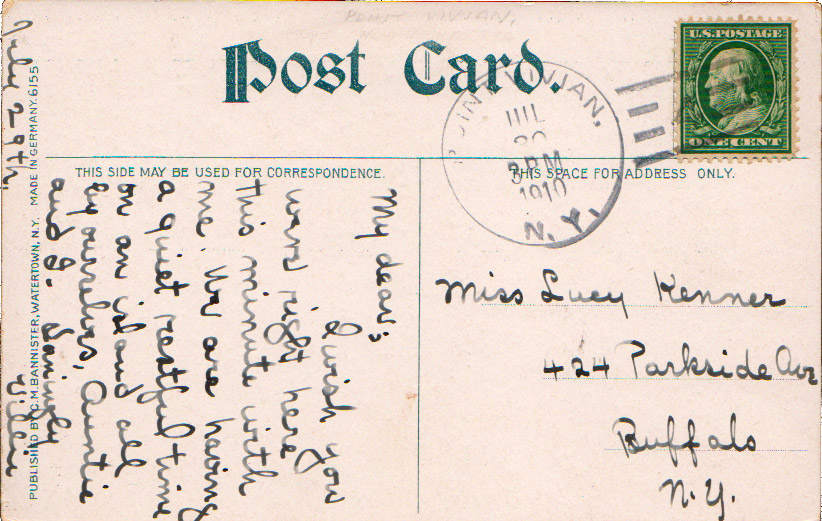 POINT VIVIAN.
Post Card.
U.S. POSTAGE
ONE CENT
POINT VIVIAN,
JUL
30
3 PM
1910
N. Y.
THIS SIDE MAY BE USED FOR CORRESPONDENCE.
THIS SPACE FOR ADDRESS ONLY.
PUBLISHED BY C.M. BANNISTER, WATERTOWN, N.Y. MADE IN GERMANY. 6155
July 29th.
My dear;
I wish you
were right here
this minute with
me. We are having
a quiet restful time
on an island all
by ourselves, Auntie
and I. Lovingly
Miss Lucy Kenner
424 Parkside Ave
Buffalo
N.Y.